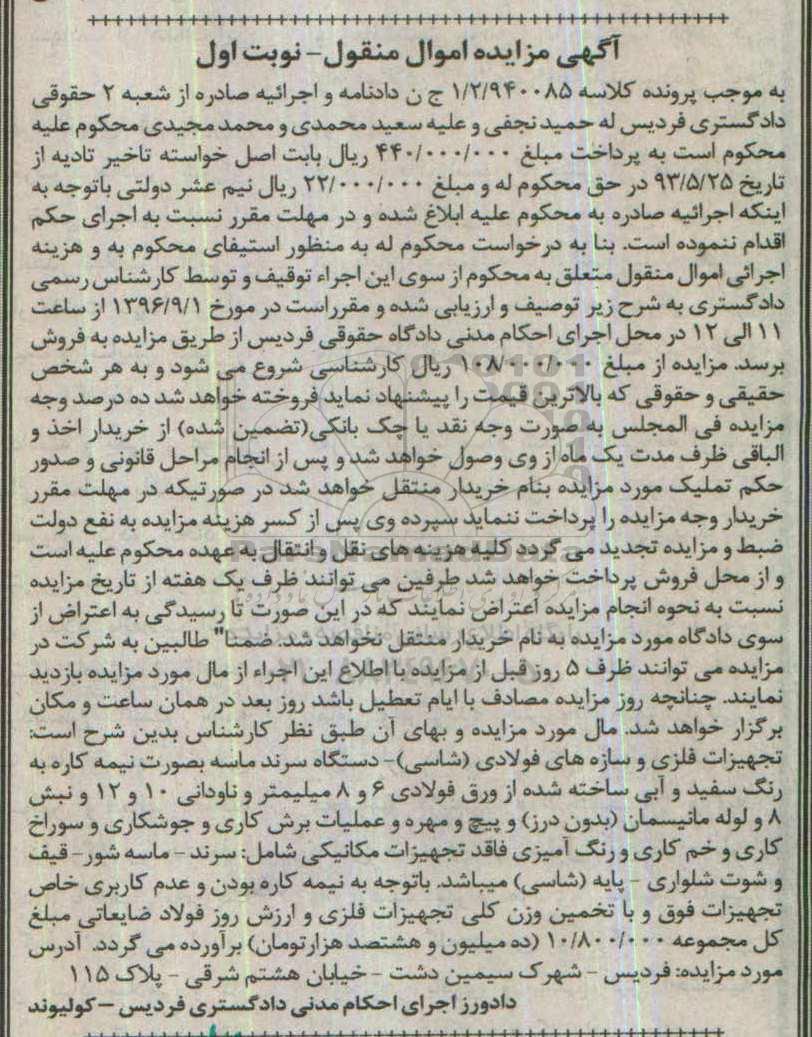 آگهی مزایده اموال منقول- نوبت اول
به موجب پرونده کلاسه ۱/۲/۹۴۰۰۸۵ ج ن دادنامه و اجرائیه صادره از شعبه ۲ حقوقی
دادگستری فردیس له حمید نجفی و علیه سعید محمدی و محمد مجیدی محکوم علیه
محکوم است به پرداخت مبلغ ۴۴۰/۰۰۰/۰۰۰ ریال بابت اصل خواسته تاخیر تادیه از
تاریخ ۹۳/۵/۲۵ در حق محکوم له و مبلغ ۲۲/۰۰۰/۰۰۰ ریال نیم عشر دولتی باتوجه به
اینکه اجرائیه صادره به محکوم علیه ابلاغ شده و در مهلت مقرر نسبت به اجرای حکم
اقدام ننموده است. بنا به درخواست محکوم له به منظور استیفای محکوم به و هزینه
اجرائی اموال منقول متعلق به محکوم از سوی این اجراء توقیف و توسط کارشناس رسمی
دادگستری به شرح زیر توصیف و ارزیابی شده و مقرراست در مورخ ۱۳۹۶/۹/۱ از ساعت
۱۱ الی ۱۲ در محل اجرای احکام مدنی دادگاه حقوقی فردیس از طریق مزایده به فروش
برسد. مزایده از مبلغ ۱۰۸/۰۰۰/۰۰۰ ریال کارشناسی شروع می شود و به هر شخص
حقیقی و حقوقی که بالاترین قیمت را پیشنهاد نماید فروخته خواهد شد ده درصد وجه
مزایده فی المجلس به صورت وجه نقد یا چک بانکی(تضمین شده) از خریدار اخذ و
الباقی ظرف مدت یک ماه از وی وصول خواهد شد و پس از انجام مراحل قانونی و صدور
حکم تملیک مورد مزایده بنام خریدار منتقل خواهد شد در صورتیکه در مهلت مقرر
خریدار وجه مزایده را پرداخت ننماید سپرده وی پس از کسر هزینه مزایده به نفع دولت
ضبط و مزایده تجدید می گردد کلیه هزینه های نقل و انتقال به عهده محکوم علیه است
و از محل فروش پرداخت خواهد شد طرفین می توانند ظرف یک هفته از تاریخ مزایده
نسبت به نحوه انجام مزایده اعتراض نمایند که در این صورت تا رسیدگی به اعتراض از
سوی دادگاه مورد مزایده به نام خریدار منتقل نخواهد شد. ضمنا" طالبین به شرکت در
مزایده می توانند ظرف ۵ روز قبل از مزایده با اطلاع این اجراء از مال مورد مزایده بازدید
نمایند. چنانچه روز مزایده مصادف با ایام تعطیل باشد روز بعد در همان ساعت و مکان
برگزار خواهد شد. مال مورد مزایده و بهای آن طبق نظر کارشناس بدین شرح است:
تجهیزات فلزی و سازه های فولادی (شاسی)- دستگاه سرند ماسه بصورت نیمه کاره به
رنگ سفید و آبی ساخته شده از ورق فولادی ۶ و ۸ میلیمتر و ناودانی ۱۰ و ۱۲ و نبش
۸ و لوله مانیسمان (بدون درز) و پیچ و مهره و عملیات برش کاری و جوشکاری و سوراخ
کاری و خم کاری و رنگ آمیزی فاقد تجهیزات مکانیکی شامل: سرند - ماسه شور- قیف
و شوت شلواری - پایه (شاسی) میباشد. باتوجه به نیمه کاره بودن و عدم کاربری خاص
تجهیزات فوق و با تخمین وزن کلی تجهیزات فلزی و ارزش روز فولاد ضایعاتی مبلغ
کل مجموعه ۱۰/۸۰۰/۰۰۰ (ده میلیون و هشتصد هزارتومان) برآورده می گردد. آدرس
مورد مزایده: فردیس - شهرک سیمین دشت - خیابان هشتم شرقی - پلاک ۱۱۵
دادورز اجرای احکام مدنی دادگستری فردیس –کولیوند